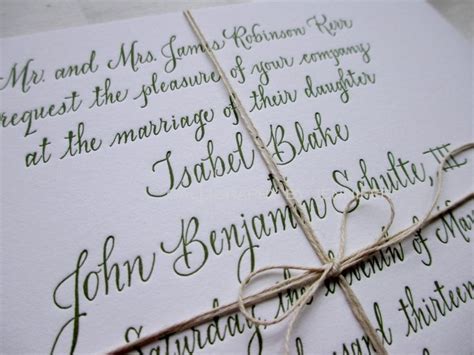 Mr. and Mrs. James Robinson Kerr
request the pleasure of your company
at the marriage of their daughter
Isabel Blake
to
John Benjamin Schulte, III
Saturday the eleventh of
thousand thirteen